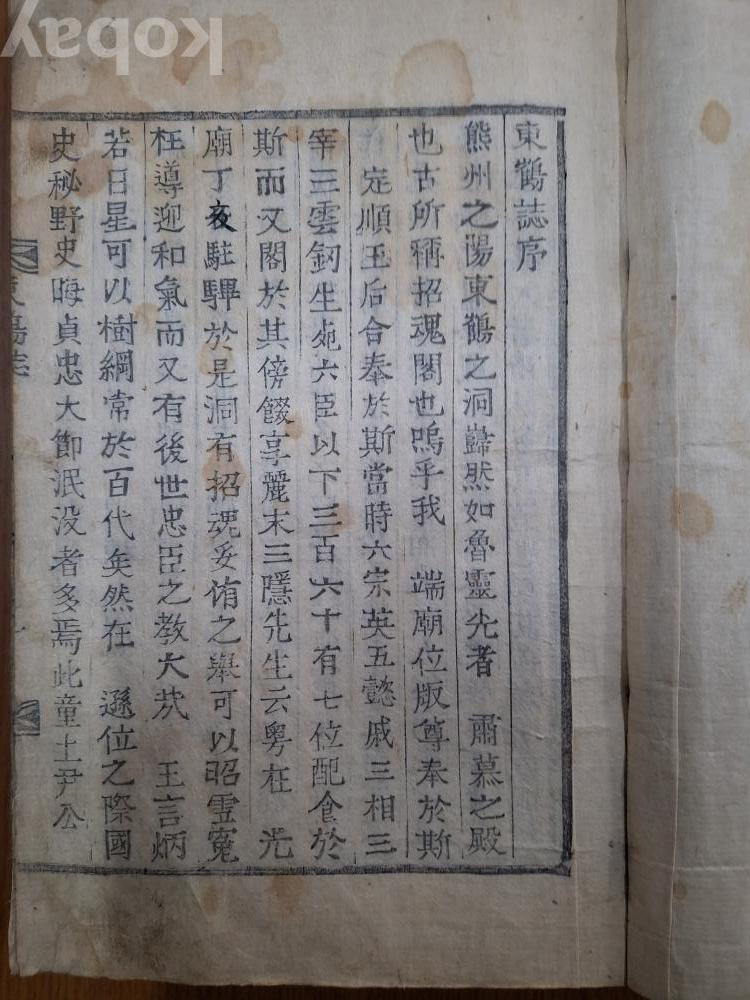 kobay
東鶴誌序
熊州之陽東鶴之洞巋然如魯靈光者 肅慕之殿
也古所稱招魂閣也嗚乎我 端廟位版尊奉於斯
定順王后合奉於斯當時六宗英五懿戚三相三
宰三雲釼生死六臣以下三百六十有七位配食於
斯而又閣於其傍餟享麗末三隱先生云粤在 光
廟丁亥駐驆於是洞有招魂妥侑之擧可以昭雪寃
枉導迎和氣而又有後世忠臣之教大哉 王言炳
若日星可以樹綱常於百代矣然在 遜位之際國
史秘野史晦貞忠大節泯没者多焉此童土尹公
東鶴誌